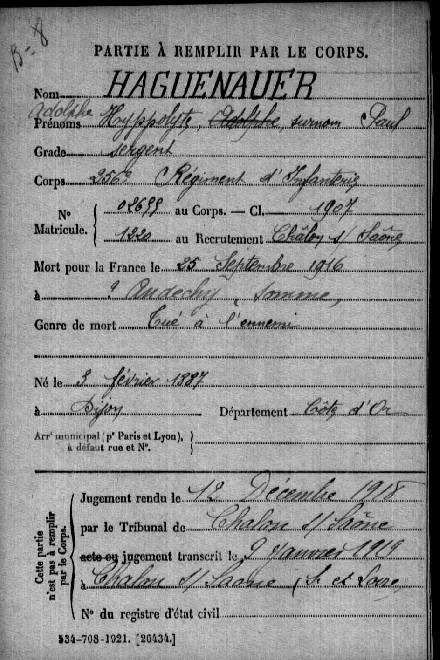 B-8
PARTIE À REMPLIR PAR LE CORPS.
Nom HAGUENAUER
Adolphe
Prénoms Hyppolyte, Adolphe, surnom Paul
Grade Sergent
Corps 256e Régiment d'Infanterie
No Matricule. { 02699 au Corps. — Cl. 1907
1220 au Recrutement Châlon s/ Saône
Mort pour la France le 25 Septembre 1916
à Andechy, Somme,
Genre de mort Tué à l'ennemi
Né le 3 février 1887
à Dijon Département Côte d'Or
Arrt municipal (pr Paris et Lyon), à défaut rue et No. }
Cette partie n'est pas à remplir par le Corps.
Jugement rendu le 12 Décembre 1918
par le Tribunal de Chalon s/ Saône
acte ou jugement transcrit le 9 Janvier 1919
à Chalon s/ Saone, S. et Loire
No du registre d'état civil
534-708-1921. [26434.]